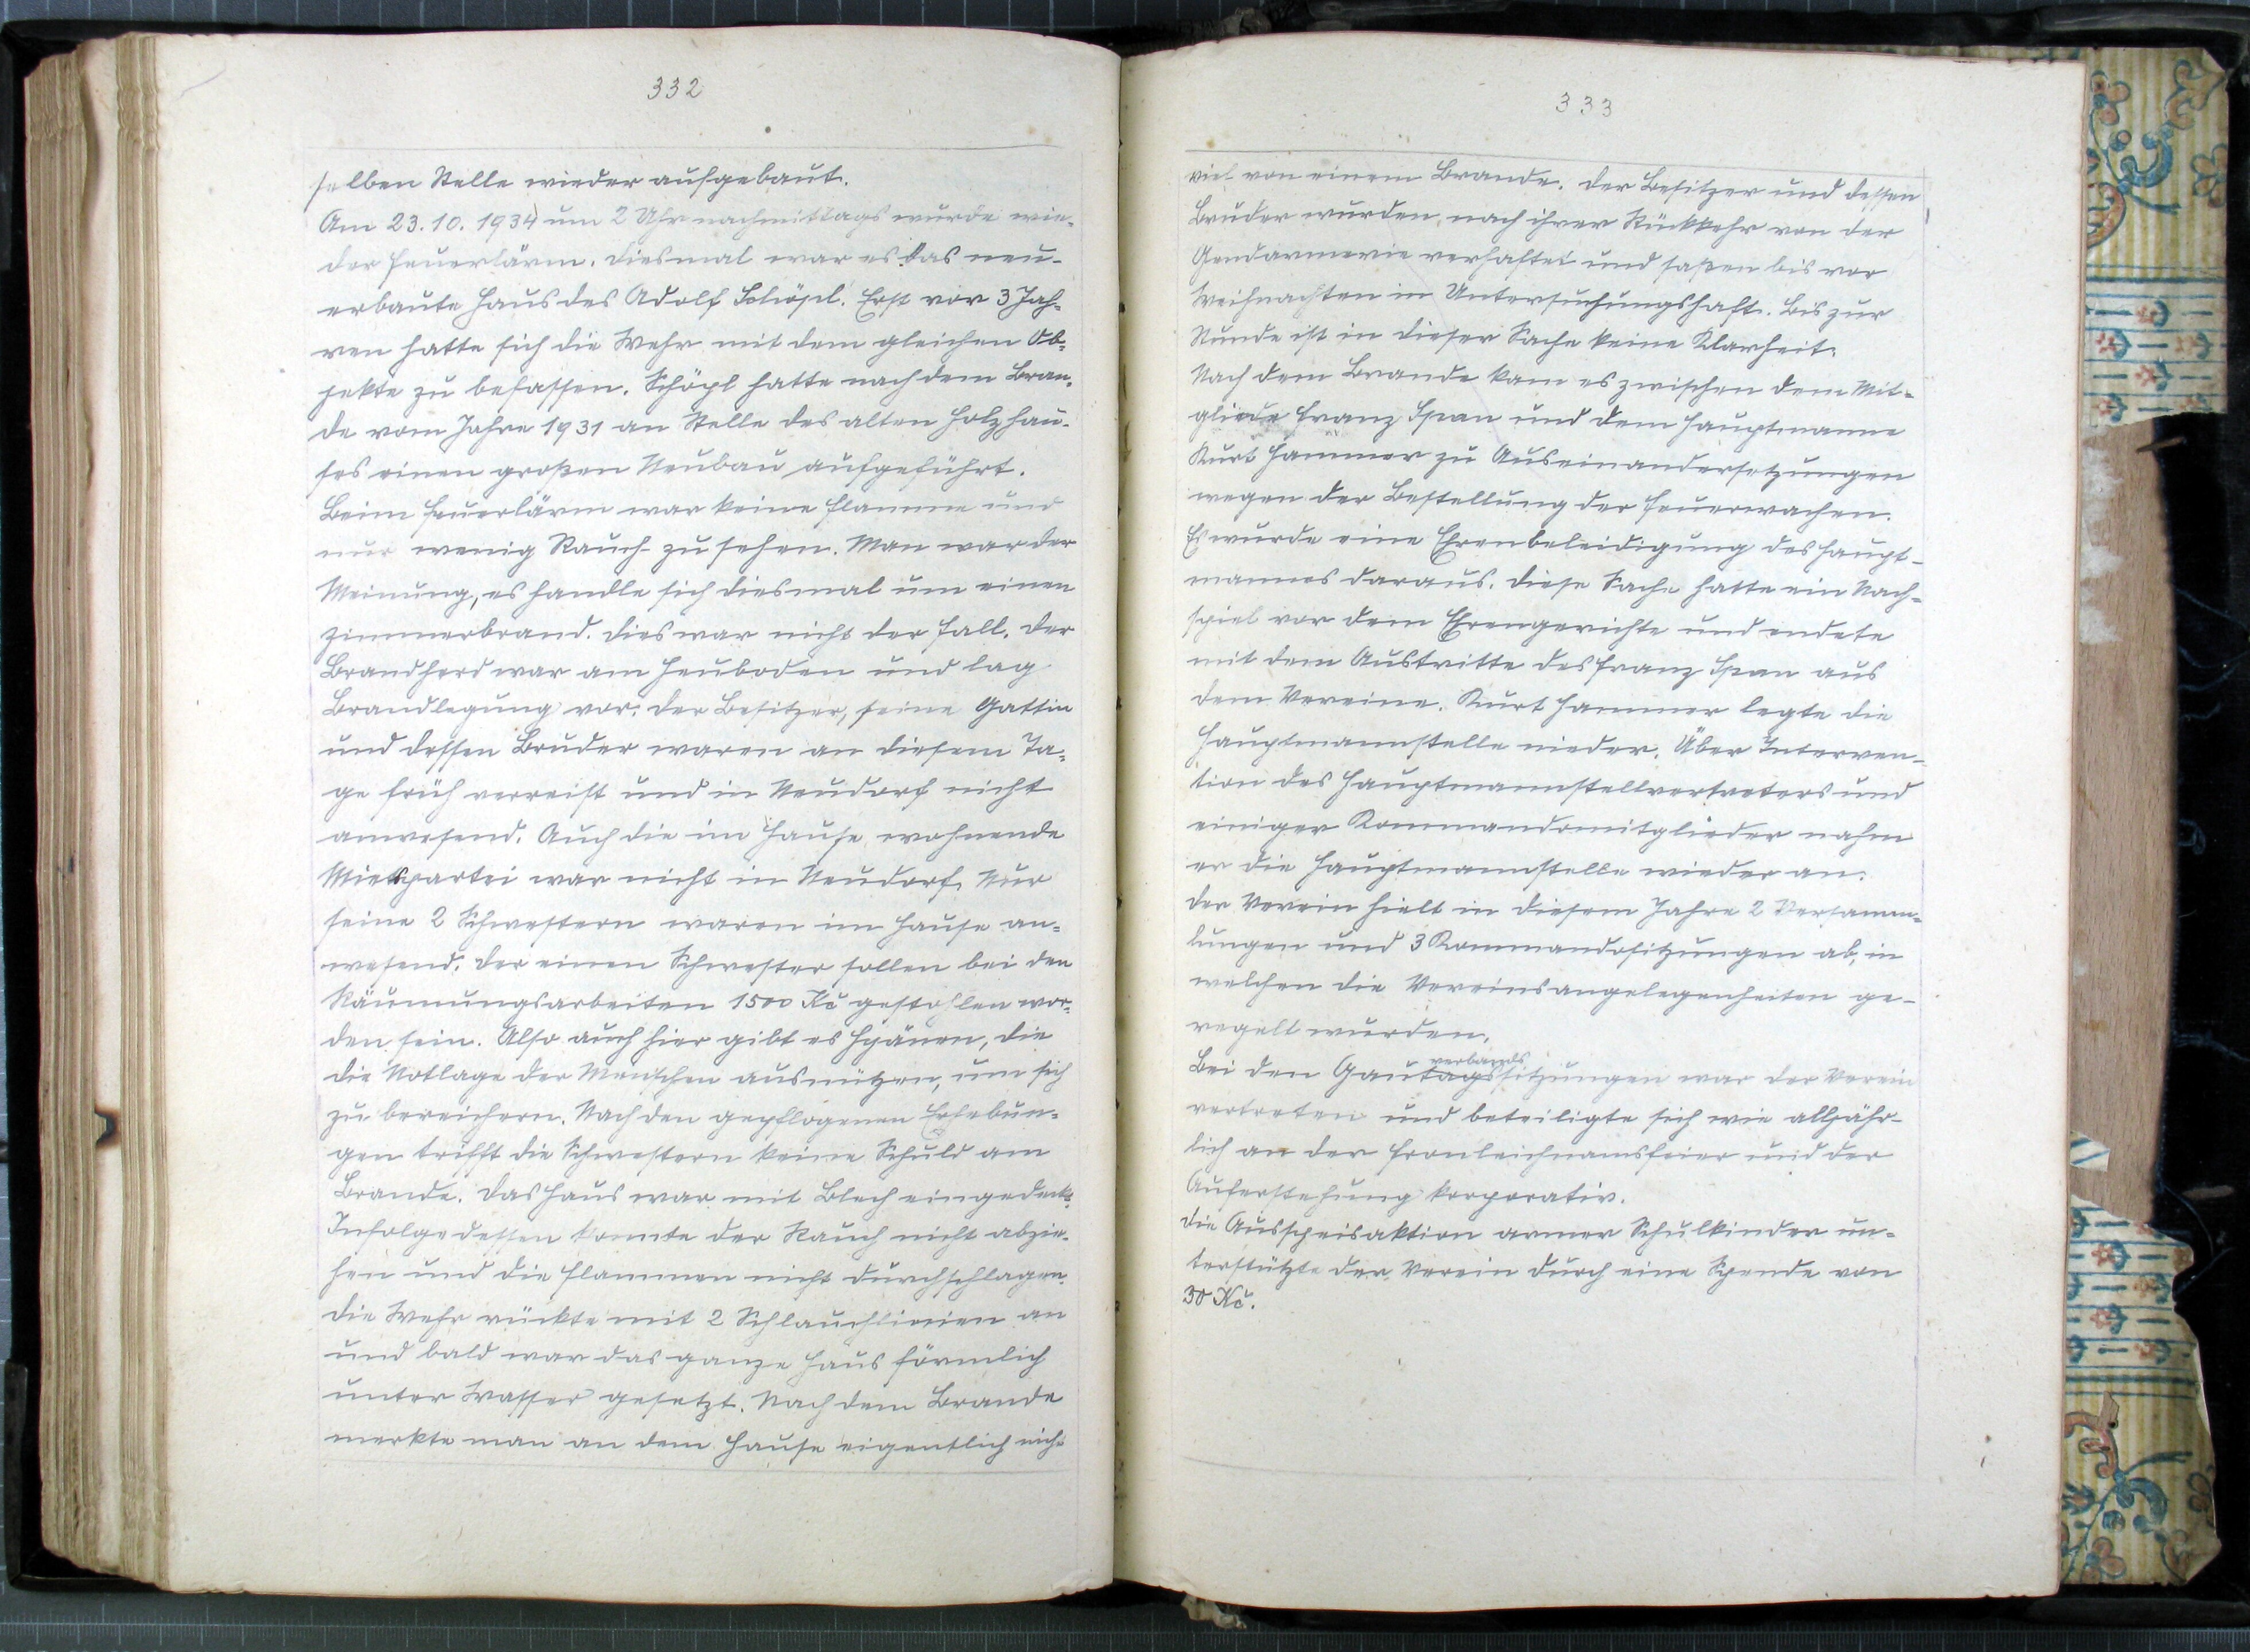 332
selben Stelle wieder aufgebaut.
Am 23.10.1934 um 2 Uhr nachmittags wurde wie-
der Feuerlärm. Diesmal war es das neu-
erbaute Haus des Adolf Schöpl. Erst vor 3 Jah-
ren hatte sich die Wehr mit dem gleichen Ob-
jekte zu befassen. Schöpl hatte nach dem Bran-
de vom Jahre 1931 an Stelle des alten Holzhau-
ses einen großen Neubau aufgeführt.
Beim Feuerlärm war keine Flamme und
nur wenig Rauch zu sehen. Man war der
Meinung, es handle sich diesmal um einen
Zimmerbrand. Dies war nicht der Fall. Der
Brandherd war am Heuboden und lag
Brandlegung vor. Der Besitzer, seine Gattin
und dessen Bruder waren an diesem Ta-
ge früh verreist und in Neudorf nicht
anwesend. Auch die im Hause wohnende
Mietspartei war nicht in Neudorf. Nur
seine 2 Schwestern waren im Hause an-
wesend. Der einen Schwester sollen bei den
Räumungsarbeiten 1500 Kč gestohlen wor-
den sein. Also auch hier gibt es Hyänen, die
die Notlage der Menschen ausnützen, um sich
zu bereichern. Nach den gepflogenen Erhebun-
gen trifft die Schwestern keine Schuld am
Brande. Das Haus war mit Blech eingedeckt.
Infolgedessen konnte der Rauch nicht abzie-
hen und die Flammen nicht durchschlagen.
Die Wehr rückte mit 2 Schlauchlinien an
und bald war das ganze Haus förmlich
unter Wasser gesetzt. Nach dem Brande
merkte man an dem Hause eigentlich nicht
333
viel von einem Brande. Der Besitzer und dessen
Bruder wurden nach ihrer Rückkehr von der
Gendarmerie verhaftet und saßen bis vor
Weihnachten in Untersuchungshaft. Bis zur
Stunde ist in dieser Sache keine Klarheit.
Nach dem Brande kam es zwischen dem Mit-
gliede Franz Span und dem Hauptmanne
Kurt Hammer zu Auseinandersetzungen
wegen der Bestellung der Feuerwachen.
Es wurde eine Ehrenbeleidigung des Haupt-
mannes daraus. Diese Sache hatte ein Nach-
spiel vor dem Ehrengerichte und endete
mit dem Austritte des Franz Span aus
dem Vereine. Kurt Hammer legte die
Hauptmannstelle nieder. Über Interven-
tion des Hauptmannstellvertreters und
einiger Kommandomitglieder nahm
er die Hauptmannstelle wieder an.
Der Verein hielt in diesem Jahre 2 Versamm-
lungen und 3 Kommandositzungen ab, in
welchen die Vereinsangelegenheiten ge-
regelt wurden.
verbands
Bei den Gautagssitzungen war der Verein
vertreten und beteiligte sich wie alljähr-
lich an der Fronleichnamsfeier und der
Auferstehung korporativ.
Die Ausspeisaktion armer Schulkinder un-
terstützte der Verein durch eine Spende von
30 Kč.